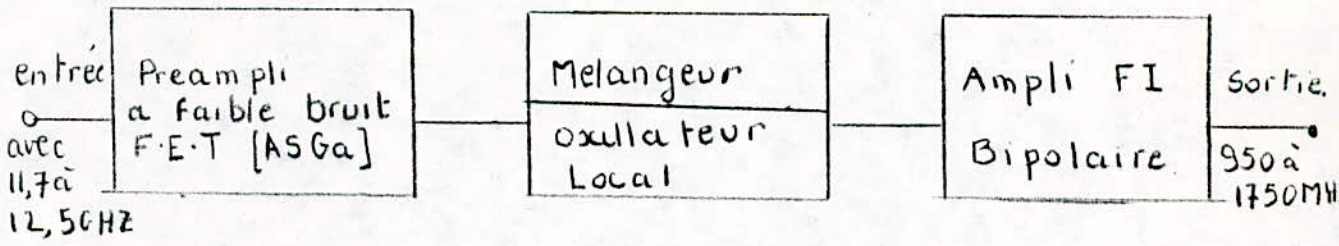 entrée
avec
11,7 à
12,5GHZ
Preampli
a faible bruit
F.E.T [ASGa]
Melangeur
oxillateur
Local
Ampli FI
Bipolaire
Sortie.
950 à
1750MH